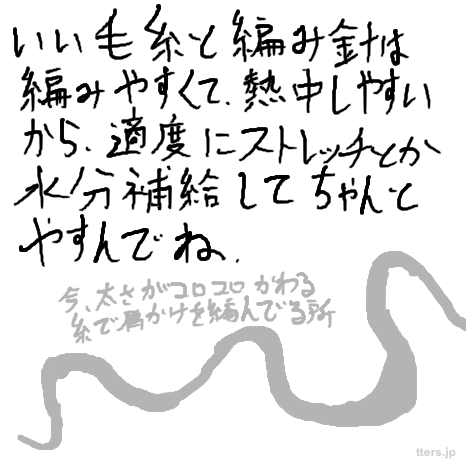 いい毛糸と編み針は
編みやすくて、熱中しやすい
から、適度にストレッチとか
水分補給してちゃんと
やすんでね、
今、太さがコロコロかわる
糸で肩かけを編んでる所
tters.jp